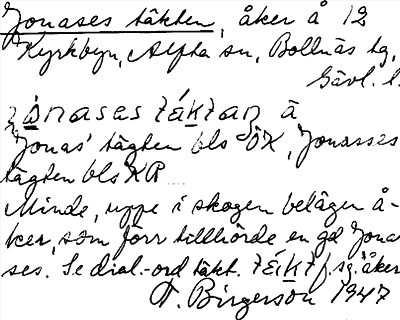 Jonases täkten, åker å 12
Kyrkbyn, Alfta sn, Bollnäs tg,
Gävl. l.
täktan å
Jonas' tägten bls ÖX, Jonasses
tägten bls XR
Minde, uppe i skogen belägen å-
ker, som förr tillhörde en gd Jona
ses. Se dial.-ord täkt. f. sg. åker
F. Birgerson 1947